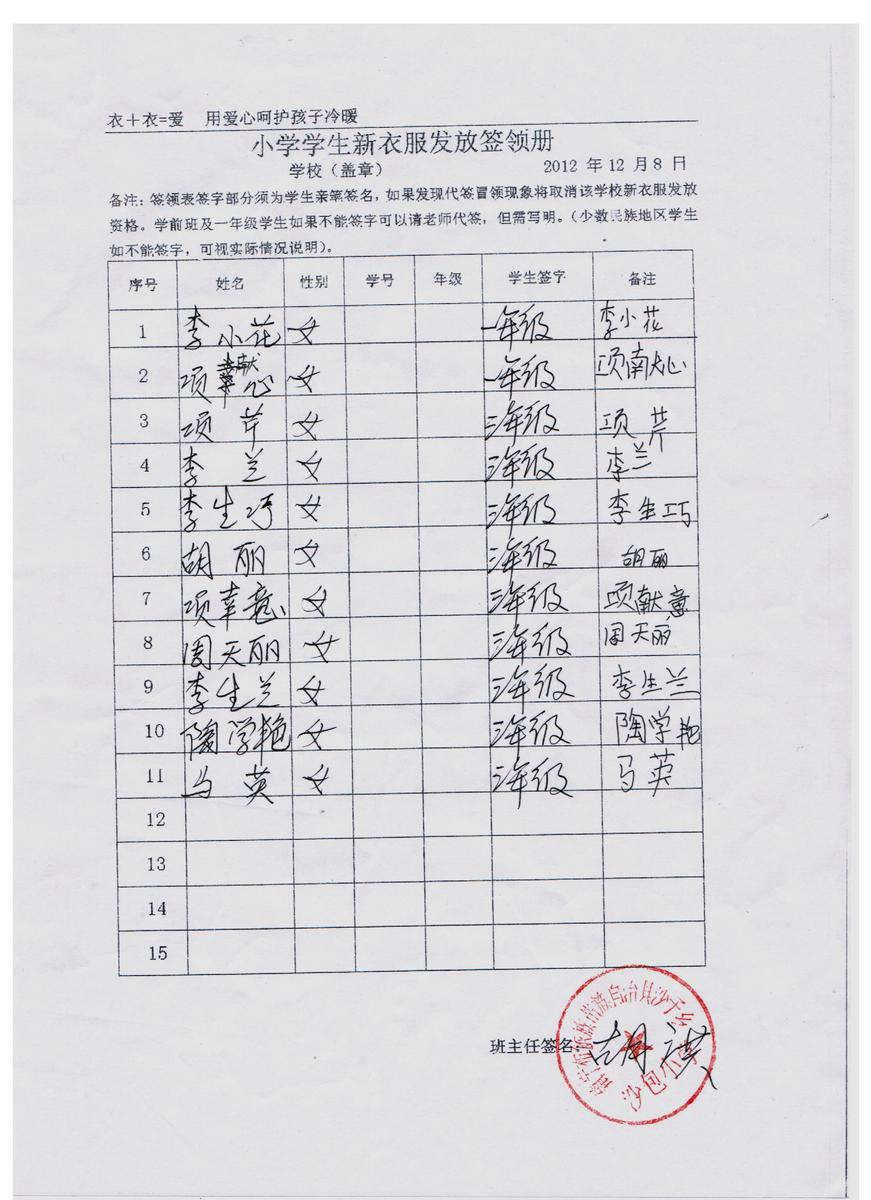 衣+衣=爱 用爱心呵护孩子冷暖
小学学生新衣服发放签领册
学校(盖章) 2012 年 12 月 8 日
备注:签领表签字部分须为学生亲笔签名,如果发现代签冒领现象将取消该学校新衣服发放
资格。学前班及一年级学生如果不能签字可以请老师代签,但需写明。(少数民族地区学生
如不能签字,可视实际情况说明)。
序号 姓名 性别 学号 年级 学生签字 备注
1 李小花 女 一年级 李小花
2 项献心 女 一年级 项南犬心
3 项芹 女 三年级 项芹
4 李兰 女 三年级 李兰
5 李生巧 女 三年级 李生巧
6 胡丽 女 三年级 胡丽
7 项 意 女 三年级 项献意
8 周天丽 女 三年级 周天丽
9 李生兰 女 三年级 李生兰
10 陶学艳 女 三年级 陶学艳
11 马英 女 三年级 马英
12
13
14
15
班主任签名: 胡
族苗族自治县沙子乡
沙包小学